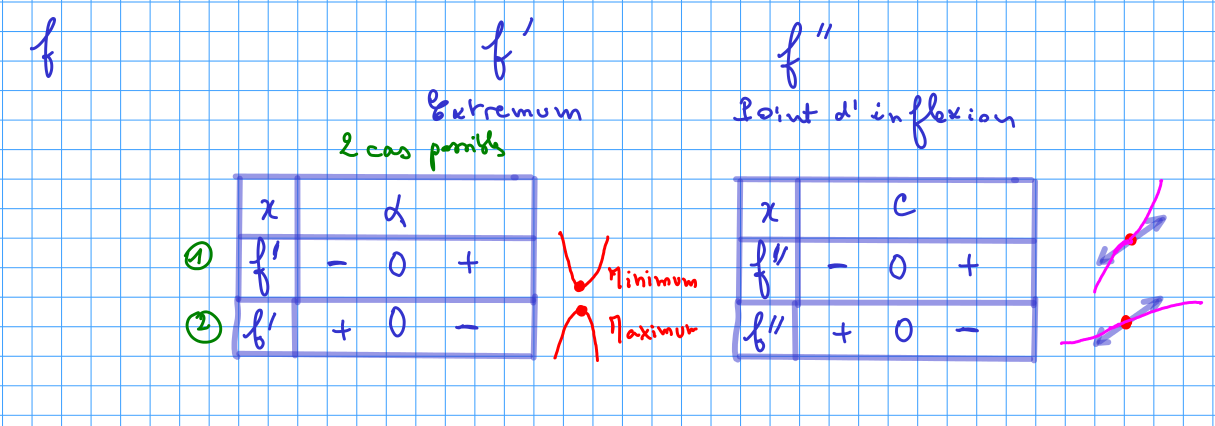 f f' f''
Extremum Point d'inflexion
2 cas possibles
x α x C
① f' - 0 + Minimum f'' - 0 +
② f' + 0 - Maximum f'' + 0 -